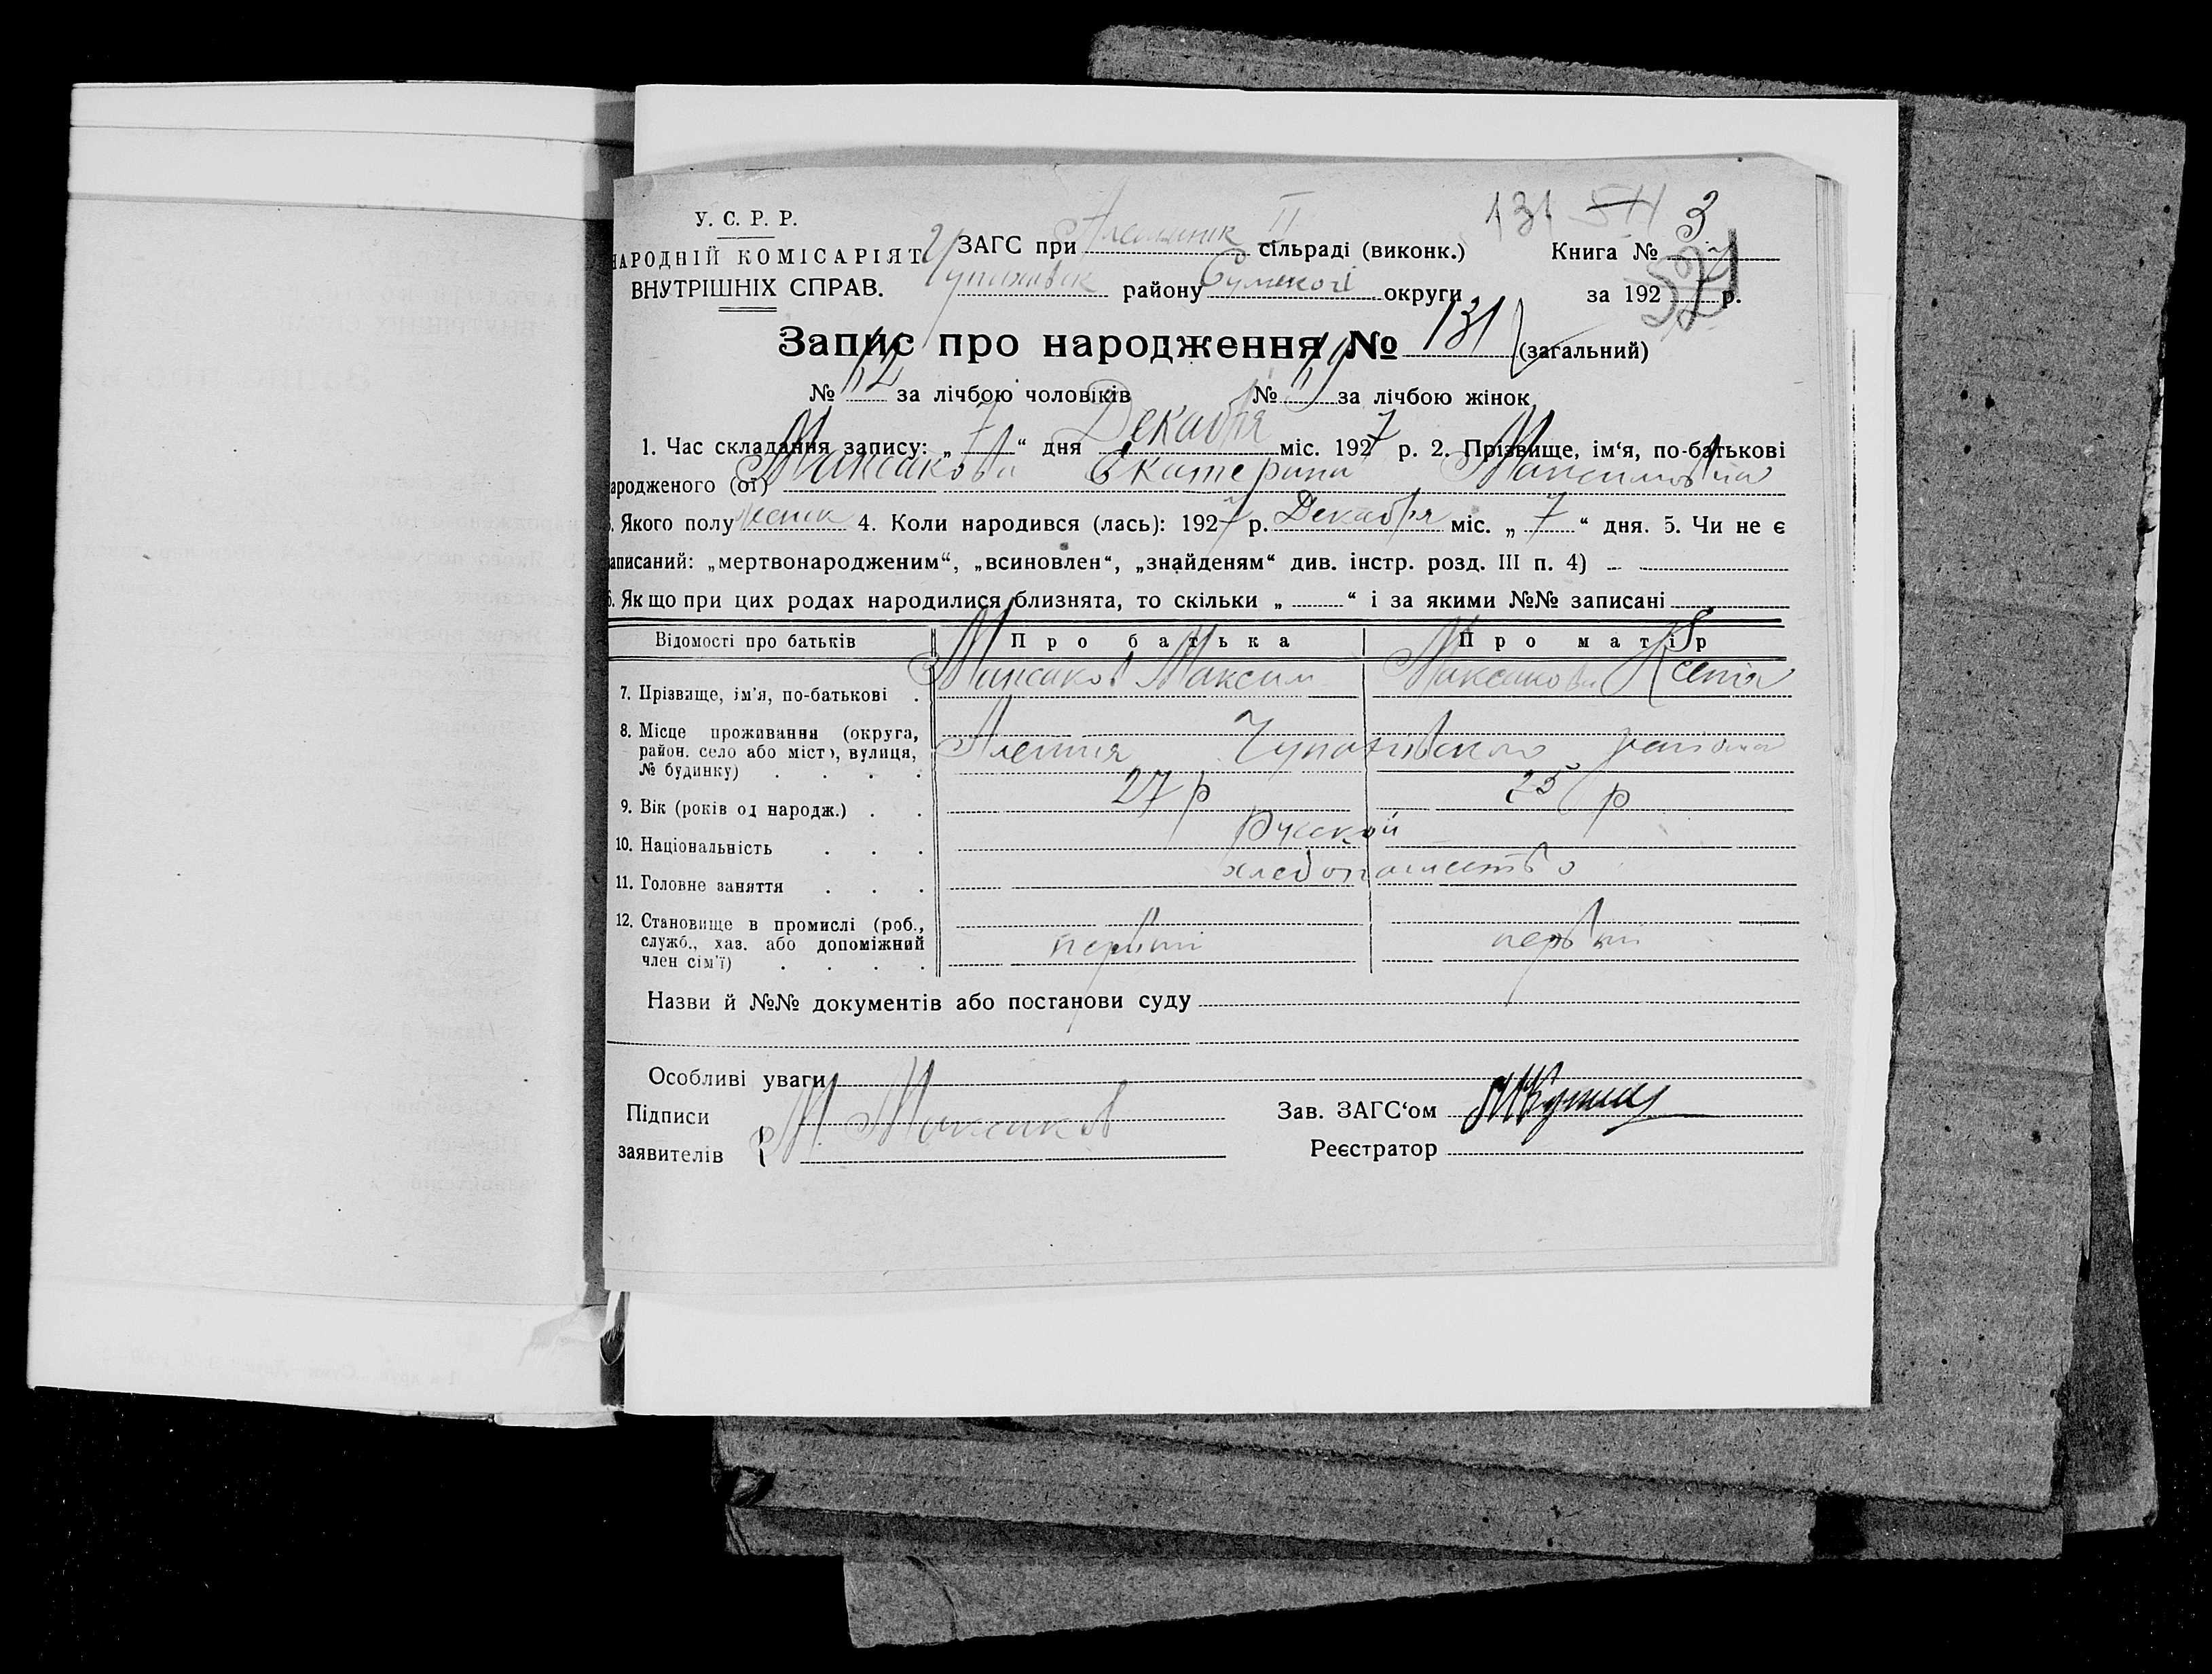 131 3
У. С. Р. Р.
НАРОДНІЙ КОМІСАРІЯТ
ВНУТРІШНІХ СПРАВ.
ЗАГС при II сільраді (виконк.) Книга №
району Сумської округи за 1927 р.
Запис про народження № 131 (загальний)
№ 62 за лічбою чоловіків № 69 за лічбою жінок
1. Час складання запису: „7“ дня Декабря міс. 1927 р. 2. Прізвище, ім‘я, по-батькові
ародженого (ої) Максакова Екатерина Максимовна
. Якого полу женск 4. Коли народився (лась): 1927 р. Декабря міс. „7“ дня. 5. Чи не є
аписаний: „мертвонародженим“, „всиновлен“, „знайденям“ див. інстр. розд. III п. 4)
6. Якщо при цих родах народилися близнята, то скільки „ “ і за якими №№ записані
Відомості про батьків Про батька Про матір
7. Прізвище, ім'я, по-батькові . Максаков Максим Максакова Ксенія
8. Місце проживання (округа,
район. село або місто), вулиця,
№ будинку) . . . . Алешня Чупаховского района
9. Вік (років од народж.) . . 27 р 25 р
10. Національність . . . Русской
11. Головне заняття . . . хлебопашество
12. Становище в промислі (роб.,
служб., хаз. або допоміжний
член сім'ї) . . . .
Назви й №№ документів або постанови суду
Особливі уваги
Підписи М Максаков Зав. ЗАГС‘ом
заявителів Реєстратор